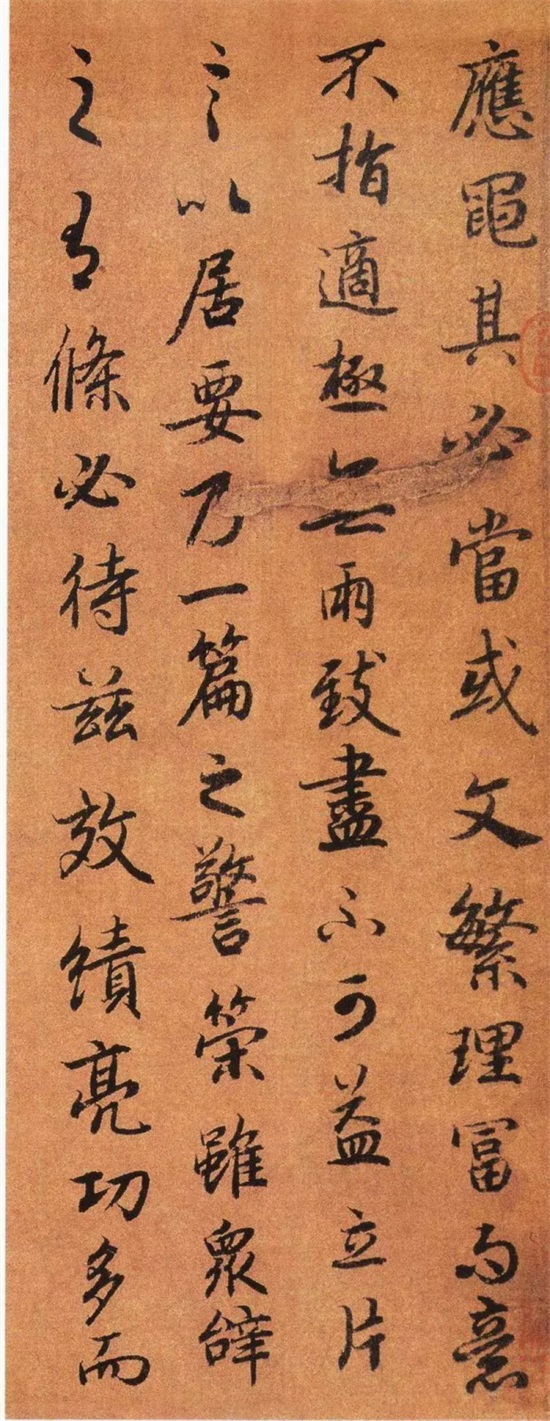 應繩其必當或文繁理富而意
不指適極無兩致盡不可益立片
言以居要乃一篇之警策雖眾辭
之有條必待茲效績亮功多而